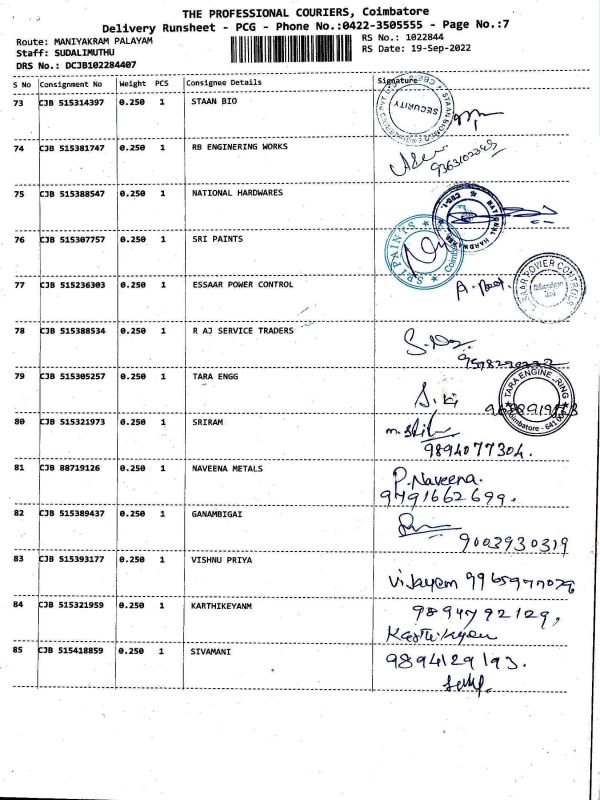 THE PROFESSIONAL COURIERS, Coimbatore
Delivery Runsheet - PCG - Phone No.:0422-3505555 - Page No.:7
Route: MANIYAKRAM PALAYAM
RS No.: 1022844
Staff: SUDALIMUTHU
RS Date: 19-Sep-2022
DRS No.: DCJB102284407
S No Consignment No Weight PCS Consignee Details Signature
73 CJB 515314397 0.250 1 STAAN BIO
SECURITY
74 CJB 515381747 0.250 1 RB ENGINERING WORKS
75 CJB 515388547 0.250 1 NATIONAL HARDWARES
NATIONAL HARDWARES
76 CJB 515307757 0.250 1 SRI PAINTS
SRI PAINTS Coimbatore
77 CJB 515236303 0.250 1 ESSAAR POWER CONTROL
ESSAAR POWER CONTROLS
78 CJB 515388534 0.250 1 R AJ SERVICE TRADERS
79 CJB 515305257 0.250 1 TARA ENGG
TARA ENGINEERING
Coimbatore - 641
80 CJB 515321973 0.250 1 SRIRAM
9894077304.
81 CJB 88719126 0.250 1 NAVEENA METALS
P. Naveena.
9791662699.
82 CJB 515389437 0.250 1 GANAMBIGAI
9003930319
83 CJB 515393177 0.250 1 VISHNU PRIYA
Vijayem
84 CJB 515321959 0.250 1 KARTHIKEYANM
9894792129,
Karthikeyan
85 CJB 515418859 0.250 1 SIVAMANI
9894129193.